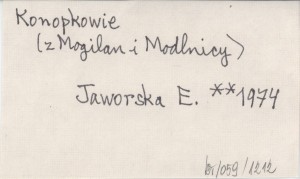 Konopkowie
(z Mogilan i Modlnicy)
Jaworska E. **1974
br/059/1212